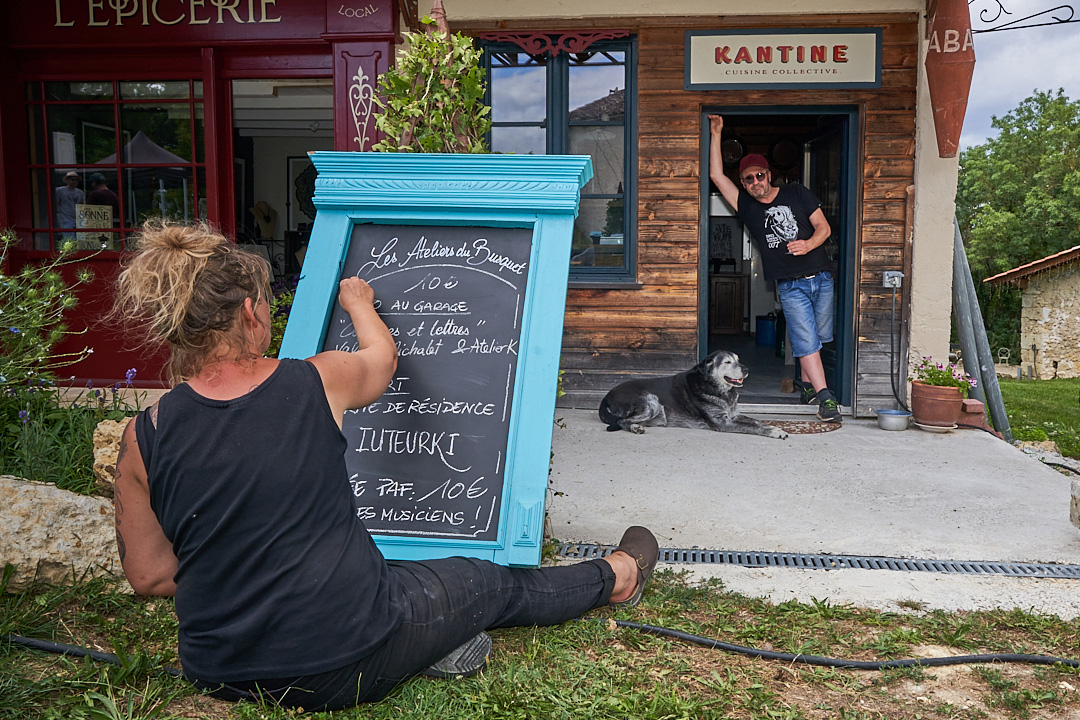 L'ÉPICERIE
LOCAL
KANTINE
CUISINE COLLECTIVE
ABA
BONNE
007
Les Ateliers du Busquet
10€
AU GARAGE
et lettres"
Michalet & Atelier K
DE RÉSIDENCE
IUTEURKI
PAF: 10€
ES MUSICIENS !